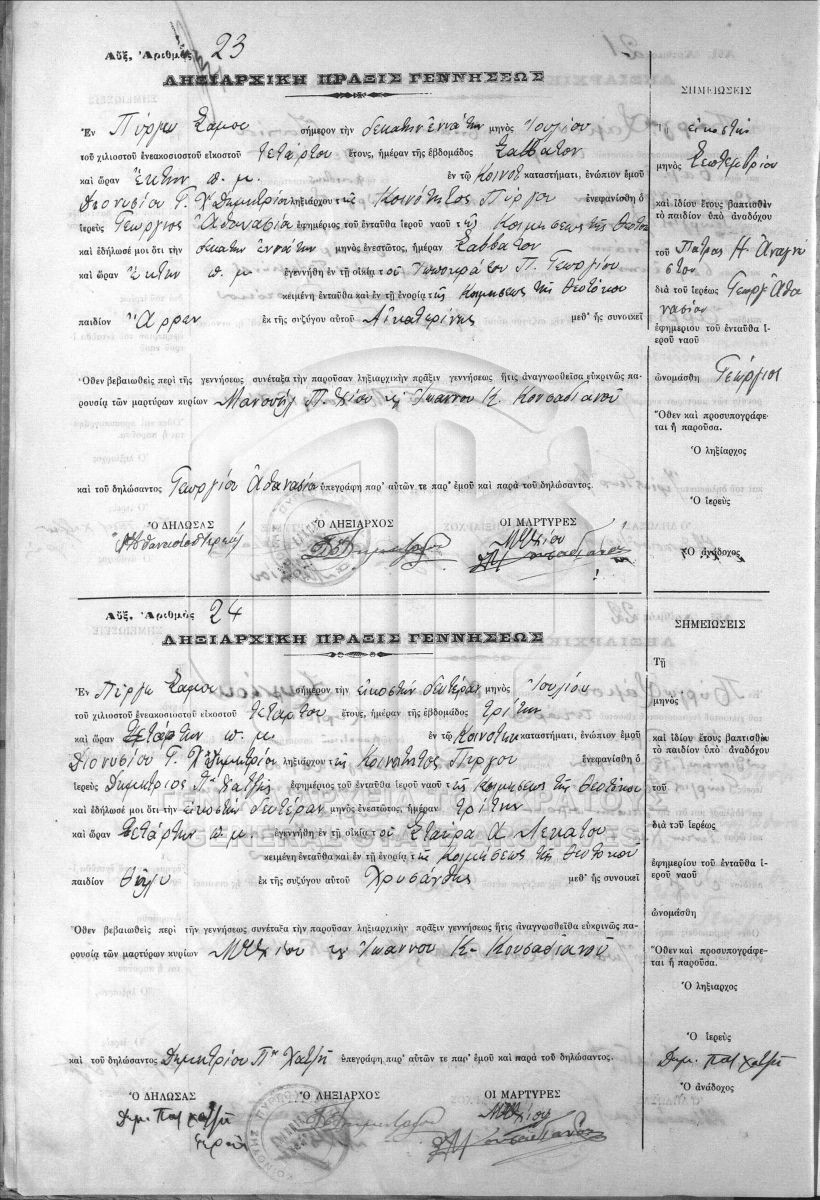 Αὔξ. Ἀριθμὸς 23
ΛΗΞΙΑΡΧΙΚΗ ΠΡΑΞΙΣ ΓΕΝΝΗΣΕΩΣ
Ἐν Πύργῳ Σάμου σήμερον τὴν δεκάτην ἐννάτην μηνὸς Ἰουλίου
τοῦ χιλιοστοῦ ἐνεακοσιοστοῦ εἰκοστοῦ τετάρτου ἔτους, ἡμέραν τῆς ἑβδομάδος Σάββατον
καὶ ὥραν ἕκτην π. μ. ἐν τῷ Κοινοτ καταστήματι, ἐνώπιον ἐμοῦ
Διονυσίου Γ. Χ"Δημητρίου ληξιάρχου τῆς Κοινότητος Πύργου ἐνεφανίσθη ὁ
ἱερεὺς Γεώργιος Ἀθανασίου ἐφημέριος τοῦ ἐνταῦθα ἱεροῦ ναοῦ τῆς Κοιμήσεως τῆς Θεοτόκου
καὶ ἐδήλωσέ μοι ὅτι τὴν δεκάτην ἐννάτην μηνὸς ἐνεστῶτος, ἡμέραν Σάββατον
καὶ ὥραν ἕκτην π. μ. ἐγεννήθη ἐν τῇ οἰκίᾳ τοῦ Ἱπποκράτου Π. Γεωργίου
κειμένῃ ἐνταῦθα καὶ ἐν τῇ ἐνορίᾳ τῆς Κοιμήσεως τῆς Θεοτόκου
παιδίον Ἄρρεν ἐκ τῆς συζύγου αὐτοῦ Αἰκατερίνης μεθ' ἧς συνοικεῖ
Ὅθεν βεβαιωθεὶς περὶ τῆς γεννήσεως συνέταξα τὴν παροῦσαν ληξιαρχικὴν πρᾶξιν γεννήσεως ἥτις ἀναγνωσθεῖσα εὐκρινῶς πα-
ρουσίᾳ τῶν μαρτύρων κυρίων Μανουὴλ Π. Χίου καὶ Ἰωάννου Κ. Κουσαδιανοῦ
καὶ τοῦ δηλώσαντος Γεωργίου Ἀθανασίου ὑπεγράφη παρ' αὐτῶν τε παρ' ἐμοῦ καὶ παρὰ τοῦ δηλώσαντος.
Ὁ ΔΗΛΩΣΑΣ Ὁ ΛΗΞΙΑΡΧΟΣ ΟΙ ΜΑΡΤΥΡΕΣ
ΣΗΜΕΙΩΣΕΙΣ
Τῇ εἰκοστῇ
μηνὸς Σεπτεμβρίου
καὶ ἰδίου ἔτους βαπτισθὲν
τὸ παιδίον ὑπὸ ἀναδόχου
τοῦ Πατρας Η. Ἀναγνώ
στου
διὰ τοῦ ἱερέως Γεωργ Ἀθα
νασίου
ἐφημερίου τοῦ ἐνταῦθα ἱ-
εροῦ ναοῦ
ὠνομάσθη Γεώργιος
Ὅθεν καὶ προσυπογράφε-
ται ἡ παροῦσα.
Ὁ ληξίαρχος
Ὁ ἱερεὺς
Ὁ ἀνάδοχος
Αὔξ. Ἀριθμὸς 24
ΛΗΞΙΑΡΧΙΚΗ ΠΡΑΞΙΣ ΓΕΝΝΗΣΕΩΣ
Ἐν Πύργῳ Σάμου σήμερον τὴν εἰκοστὴν δευτέραν μηνὸς Ἰουλίου
τοῦ χιλιοστοῦ ἐνεακοσιοστοῦ εἰκοστοῦ τετάρτου ἔτους, ἡμέραν τῆς ἑβδομάδος τρίτην
καὶ ὥραν τετάρτην π. μ. ἐν τῷ Κοινοτικῷ καταστήματι, ἐνώπιον ἐμοῦ
Διονυσίου Γ. Χ"Δημητρίου ληξιάρχου τῆς Κοινότητος Πύργου ἐνεφανίσθη ὁ
ἱερεὺς Δημήτριος Π" Χατζῆς ἐφημέριος τοῦ ἐνταῦθα ἱεροῦ ναοῦ τῆς Κοιμήσεως τῆς Θεοτόκου
καὶ ἐδήλωσέ μοι ὅτι τὴν εἰκοστὴν δευτέραν μηνὸς ἐνεστῶτος, ἡμέραν τρίτην
καὶ ὥραν τετάρτην π. μ. ἐγεννήθη ἐν τῇ οἰκίᾳ τοῦ Σταύρα Α.
κειμένῃ ἐνταῦθα καὶ ἐν τῇ ἐνορίᾳ τῆς Κοιμήσεως τῆς Θεοτόκου
παιδίον θῆλυ ἐκ τῆς συζύγου αὐτοῦ Χρυσάνθης μεθ' ἧς συνοικεῖ
Ὅθεν βεβαιωθεὶς περὶ τὴν γεννήσεως συνέταξα τὴν παροῦσαν ληξιαρχικὴν πρᾶξιν γεννήσεως ἥτις ἀναγνωσθεῖθα εὐκρινῶς πα-
ρουσίᾳ τῶν μαρτύρων κυρίων Μ Π Χίου καὶ Ἰωάννου Κ. Κουσαδιανοῦ
καὶ τοῦ δηλώσαντος Δημητρίου Π" Χατζῆ ὑπεγράφη παρ' αὐτῶν τε παρ' ἐμοῦ καὶ παρὰ τοῦ δηλώσαντος.
Ὁ ΔΗΛΩΣΑΣ Ὁ ΛΗΞΙΑΡΧΟΣ ΟΙ ΜΑΡΤΥΡΕΣ
Δημ. Παπ χατζῆ
ΣΗΜΕΙΩΣΕΙΣ
Τῇ
μηνὸς
καὶ ἰδίου ἔτους βαπτισθὲν
τὸ παιδίον ὑπὸ ἀναδόχου
τοῦ
διὰ τοῦ ἱερέως
ἐφημερίου τοῦ ἐνταῦθα ἱ-
εροῦ ναοῦ
ὠνομάσθη
Ὅθεν καὶ προσυπογράφε-
ται ἡ παροῦσα.
Ὁ ληξίαρχος
Ὁ ἱερεὺς
Δημ. Παπ χατζῆ
Ὁ ἀνάδοχος